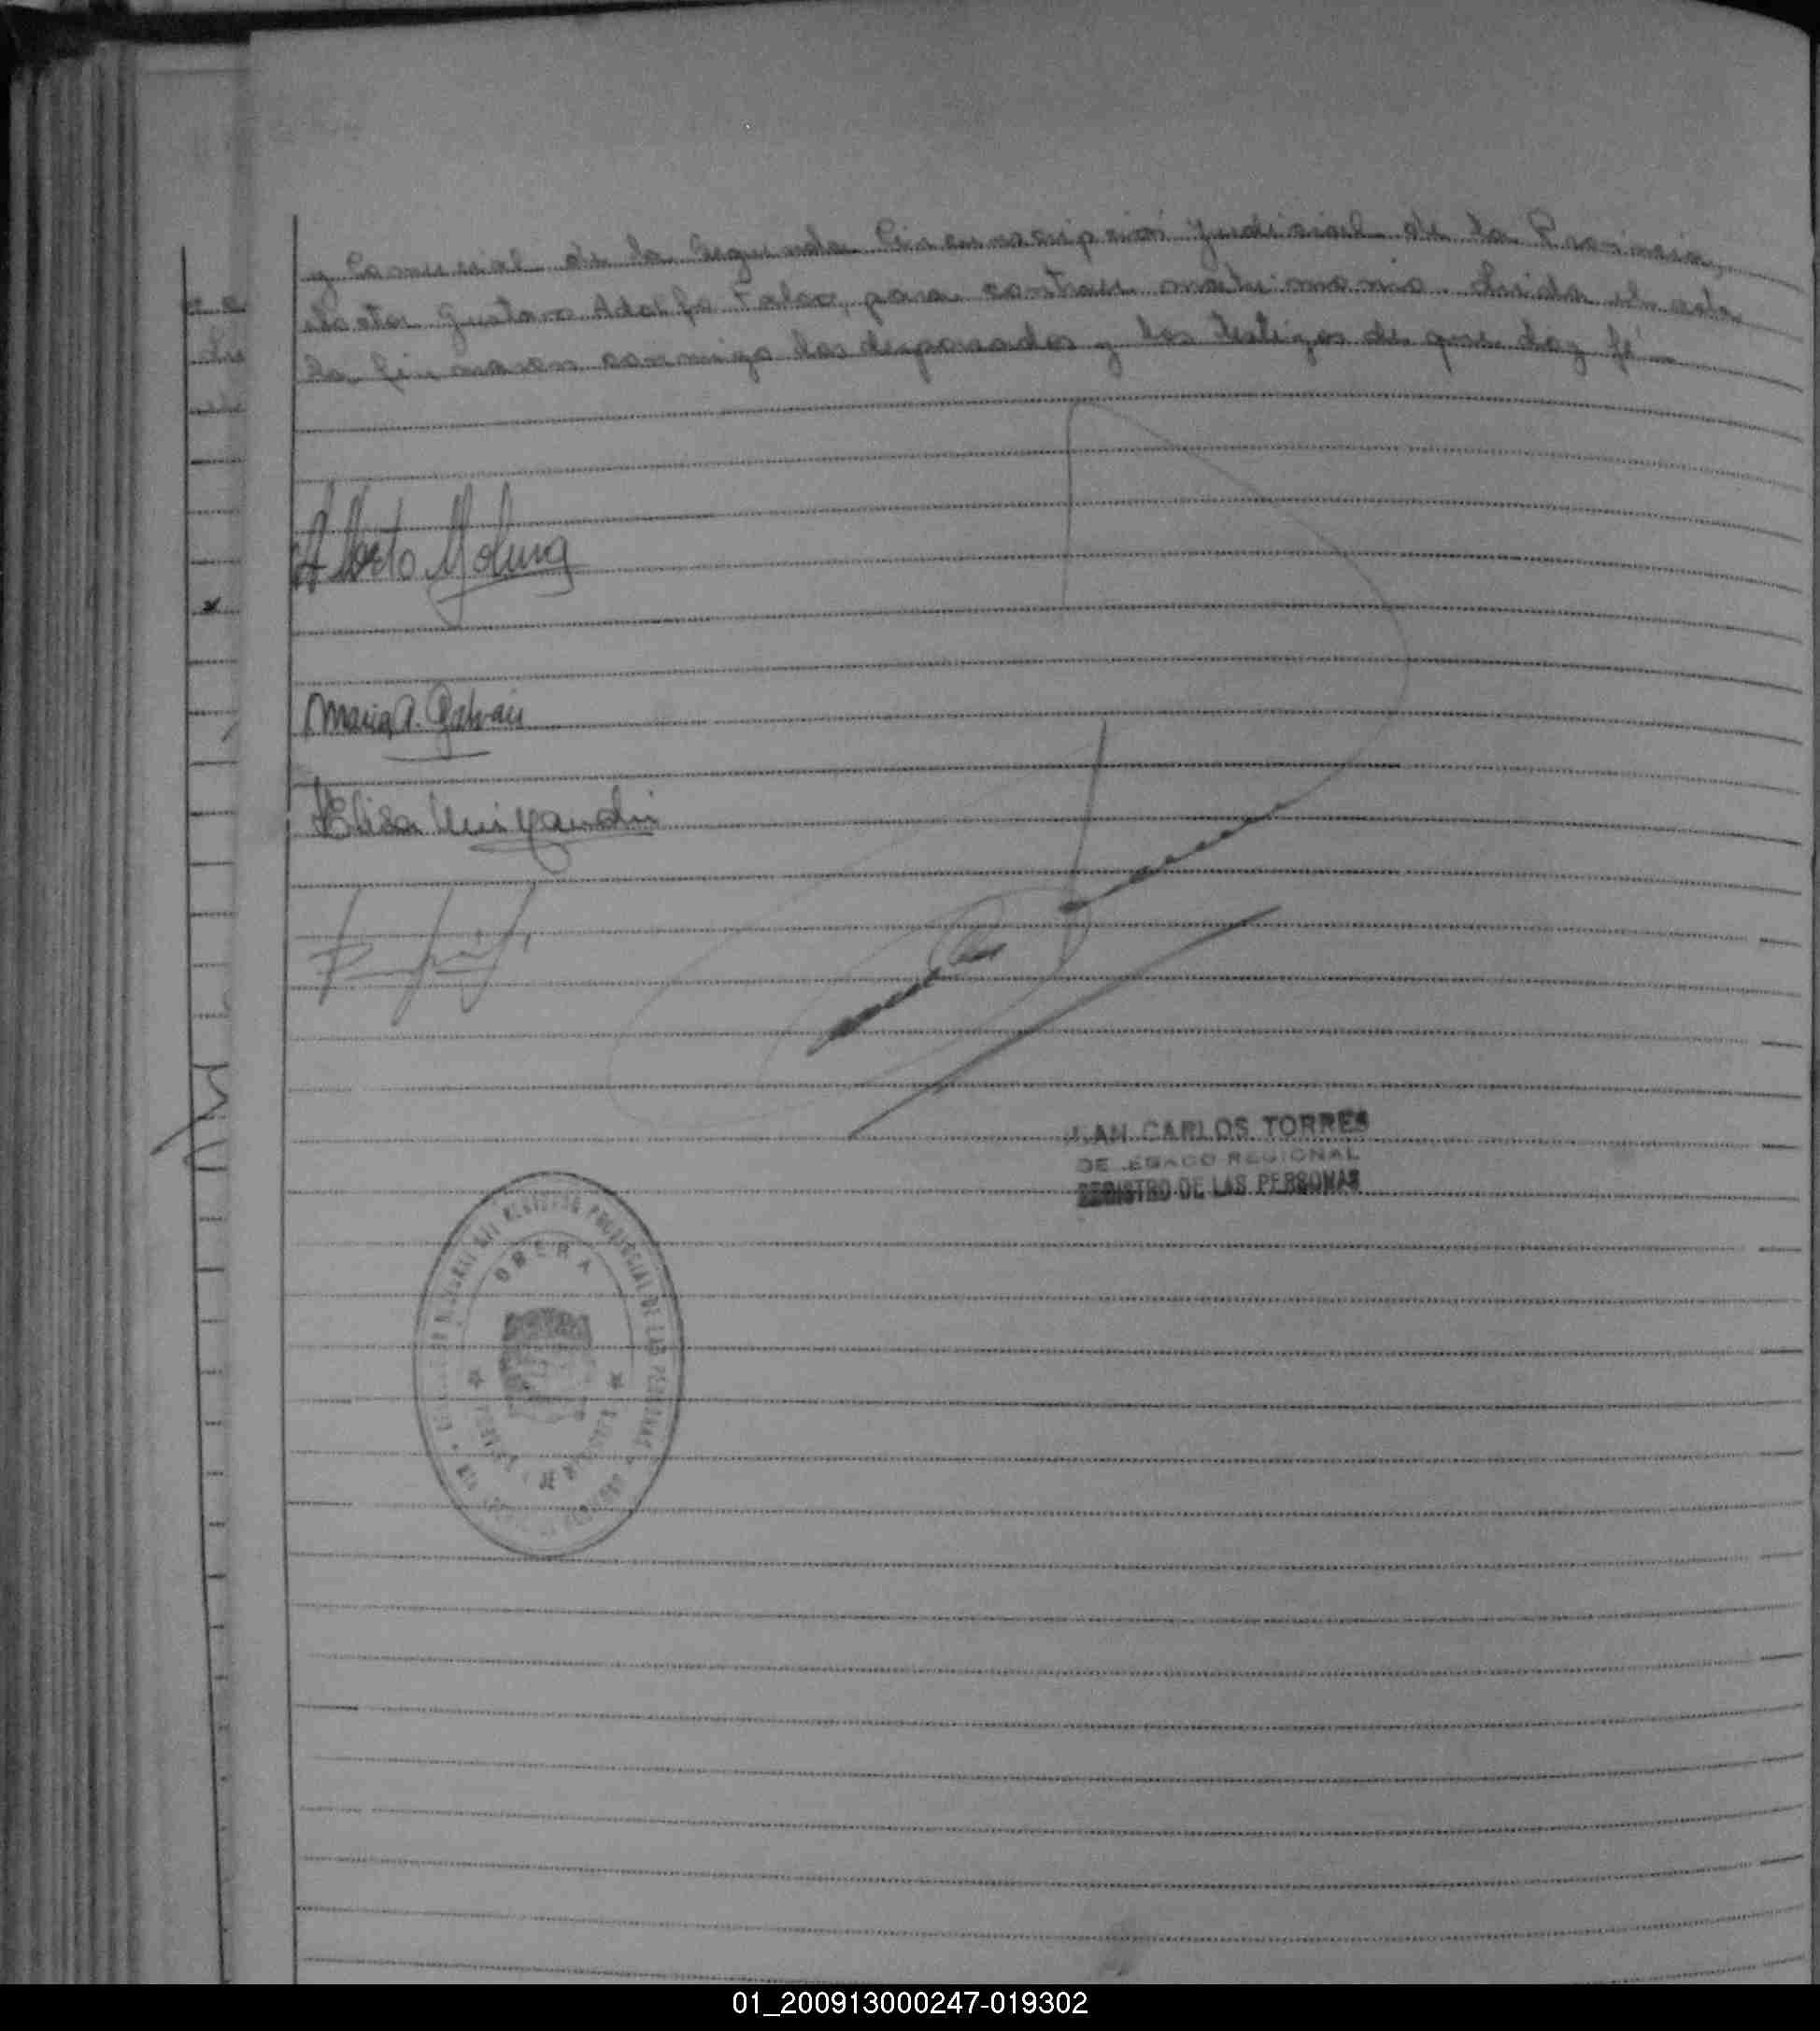 y Comercial de la Segunda Circunscripción Judicial de la Provincia,
doctor Gustavo Adolfo Falco, para contraer matrimonio. Leida el acta
la firmaron conmigo los desposados y los testigos de que doy fé
Alberto Molina
Maria A. Galvan
Elisa
JUAN CARLOS TORRES
DELEGADO REGIONAL
REGISTRO DE LAS PERSONAS
REGISTRO PROVINCIAL DE LAS PERSONAS
OBERA
01_200913000247-019302